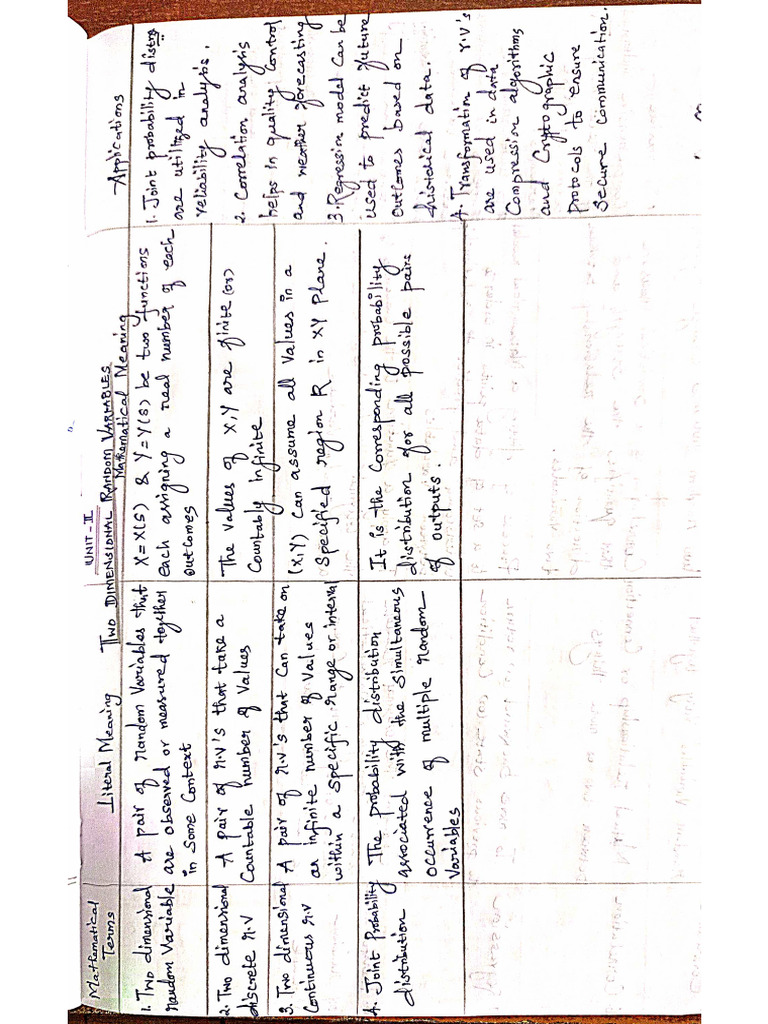 UNIT-II
TWO DIMENSIONAL RANDOM VARIABLES
Mathematical Terms
Literal Meaning
Mathematical Meaning
Applications
1. Two dimensional
random Variable
A pair of random Variables that
are observed or measured together
in some Context
X=X(s) & Y=Y(s) be two functions
each assigning a real number of each
outcomes
2. Two dimensional
discrete r.v
A pair of r.v's that take a
Countable number of Values
The values of X,Y are finite (or)
Countably infinite
3. Two dimensional
Continuous r.v
A pair of r.v's that Can take on
an infinite number of Values
within a specific range or interval
(X,Y) Can assume all Values in a
Specified region R in XY Plane.
4. Joint Probability
distribution
The probability distribution
associated with the Simultaneous
occurrence of multiple random
Variables
It is the Corresponding probability
distribution for all possible pairs
of outputs.
1. Joint probability distrs
are utilized in
reliability analysis.
2. Correlation analysis
helps in quality Control
and weather forecasting
3. Regression model Can be
used to predict future
outcomes based on
historical data.
4. Transformation of r.v's
are used in data
Compression algorithms
and Cryptographic
Protocols to ensure
Secure Communication.